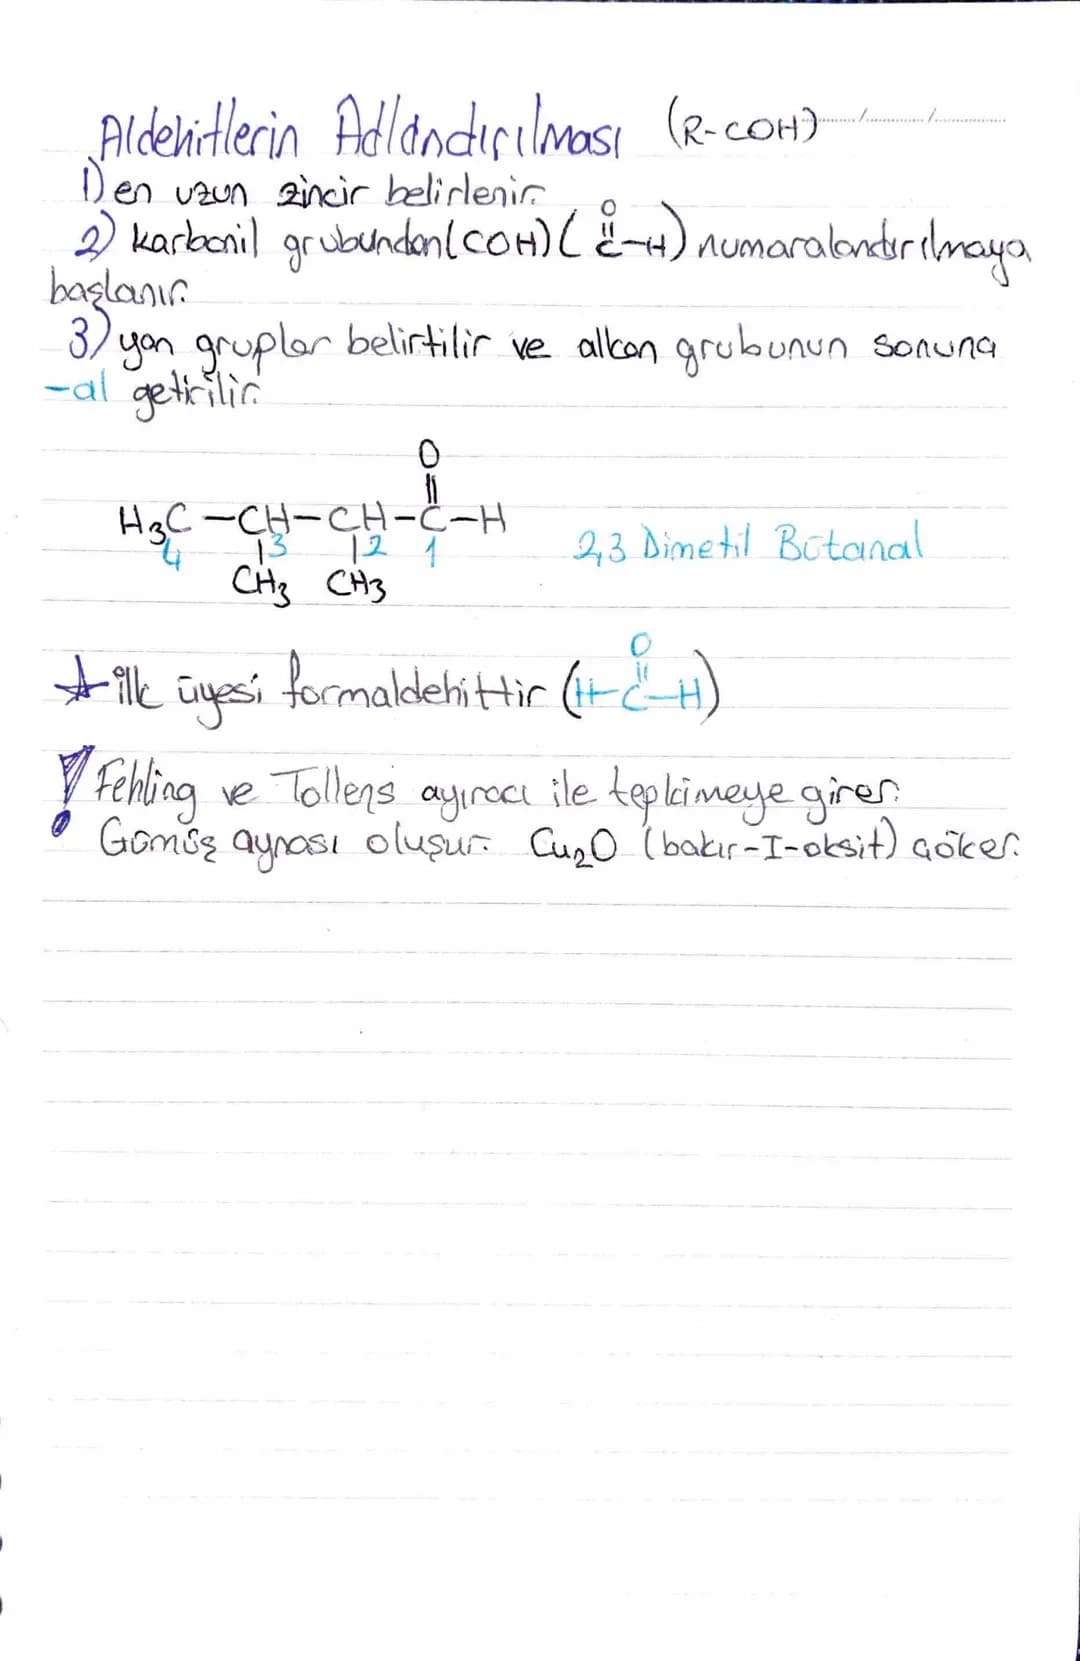 Aldehitlerin Adlandırılması (R-COH)
1) en uzun zincir belirlenir.
2) karbonil grubundan (COH) (
O
||
C-H) numaralandırılmaya
başlanır.
3) yan gruplar belirtilir ve alkan grubunun sonuna
-al getirilir.
O
||
H3C-CH-CH-C-H
4 3 2 1
CH3 CH3
2,3 Dimetil Bütanal
ilk üyesi formaldehittir (
O
||
H-C-H)
! Fehling ve Tollens ayıracı ile tepkimeye girer.
Gümüş aynası oluşur. Cu2O (bakır-I-oksit) çöker.